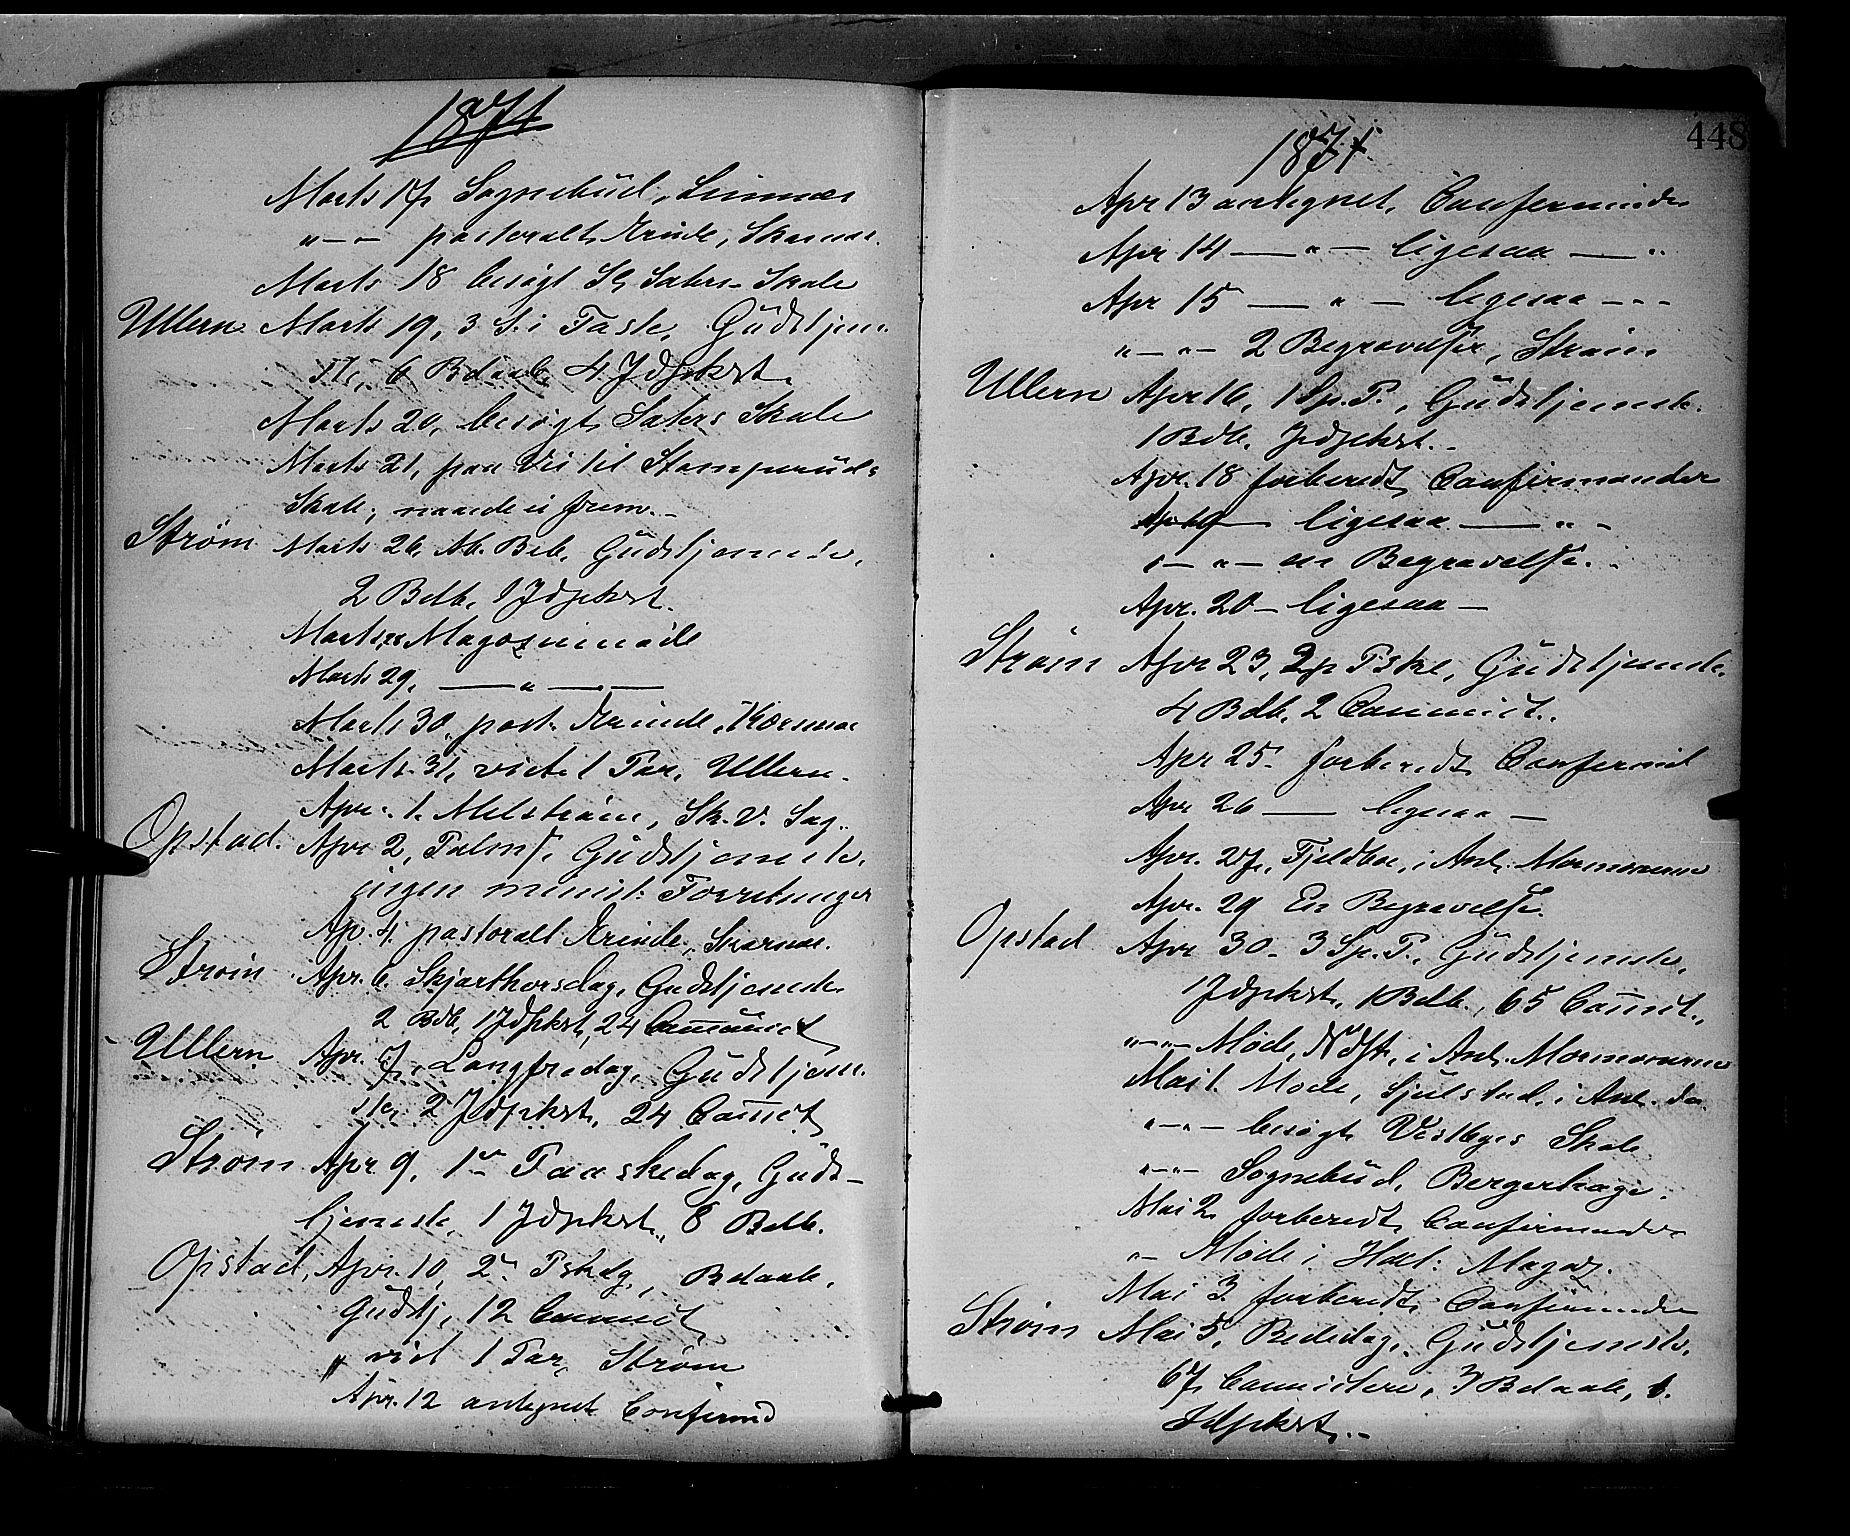 1871
Marts 17, Sognebud, Linnæs
"— pastoralt Ærinde, Skarnæs.
Marts 18 besøgt Sæters Skole
Ullern Marts 19, 3 S. i Faste, Gudstjene-
ste, 6 Bdaab, 4 Jdgkst.
Marts 20, besøgt Sæters Skole
Marts 21, paa Vei til Stomperud-
Skole, naaede ei frem.—
Strøm Marts 26, Mb. Beb. Gudstjeneste,
2 Bdb. 1 Jdgkst.
Marts Magazinmøde
Marts 29, — " —
Marts 30, past. Ærinde,
Marts 31, viet 1 Par, Ullern.
Apr. 1. Sk. V. Sag.
Opstad. Apr 2, Palms. Gudstjeneste,
ingen minist. Forretninger
Ap. 4. pastoralt Ærinde, Skarnæs.
Strøm Apr. 6. Skjærthorsdag, Gudstjeneste
2 Bdb, 1 Jdgkst, 24 Communict
Ullern Apr. 7, Langfredag, Gudstjene-
ste, 2 Jdgkst, 24 Com̅ct
Strøm Apr 9, 1ste Paaskedag, Guds-
tjeneste, 1 Jdgkst., 8 Bdb.
Opstad, Apr. 10, 2n Pskdg, Bdaab,
Gudstj, 12 Communct,
" viet 1 Par, Strøm
Apr. 12 antegnet Confirmd
448
1871
Apr 13 antegnet Confirmander
Apr 14 — " — ligesaa — "
Apr 15 — " — ligesaa — — -
"—"— 2 Begravelser, Strøm
Ullern Apr 16, 1 S. p. P., Gudstjeneste.
1 Bdb, Jdgkst.
Apr. 18 forberedt Confirmander
Apr 19 — ligesaa — " -
"—"— en Begravelse.
Apr. 20 — ligesaa —
Strøm Apr 23, 2 p Pske, Gudstjeneste.
4 Bdb, 2 Communict.
Apr 25. forberedt Confirmd
Apr 26 — ligesaa —
Apr. 27, Fjeldboe, i Anl. Mormonerne
Apr. 29 En Begravelse.
Opstad Apr 30. 3 S. p. P., Gudstjeneste,
1 Jdgkst, 1 Bdb., 65 Com̅ct.,
"—"— Møde, i Anl. Mormonerne
Mai 1. Møde, Sjulstad, i Anl. do
"—"— besøgt Vestbyes Skole
"—"— Sognebud, Bergerhage.
Mai 2 forberedt Confirmander
"— Møde i Magaz.
Mai 3. forberedt Confirmander
Strøm Mai 5, Bededag, Gudstjeneste,
67 Communictere, 3 Bdaab, 1.
Jdgkst.—